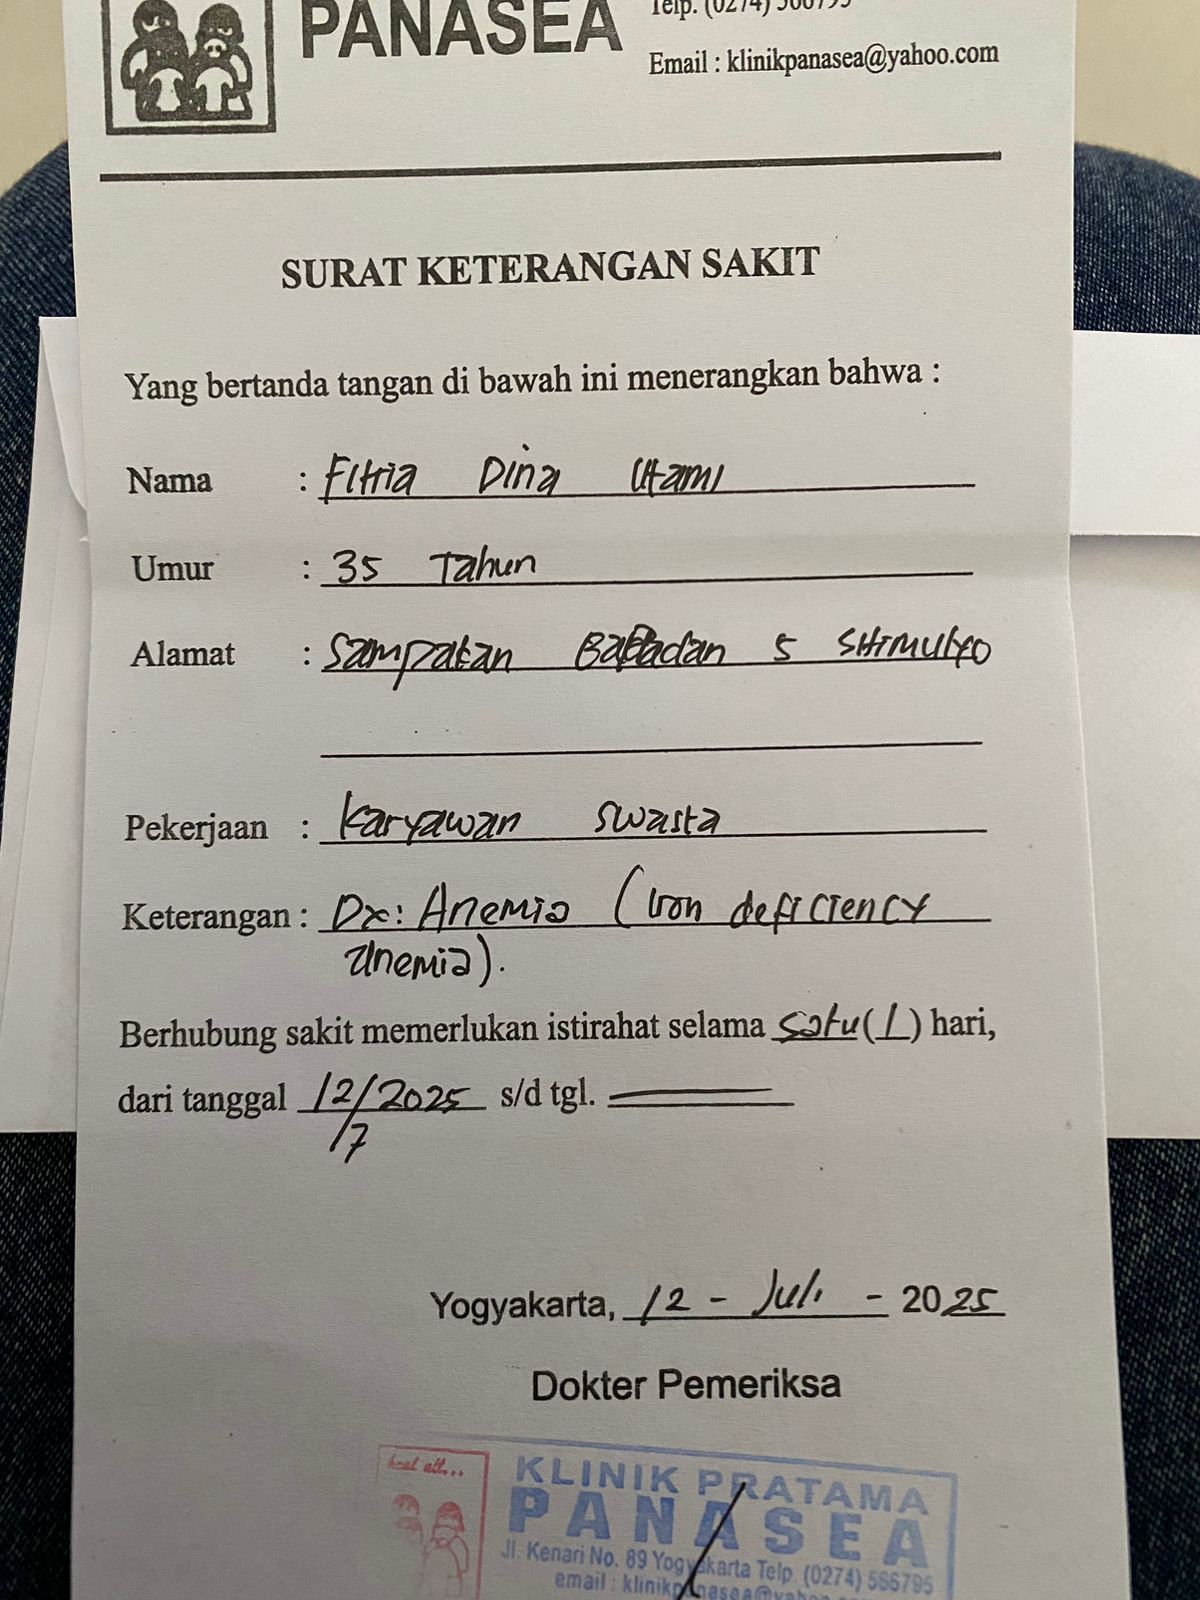 PANASEA
Telp. (0274) 566795
Email : klinikpanasea@yahoo.com
SURAT KETERANGAN SAKIT
Yang bertanda tangan di bawah ini menerangkan bahwa :
Nama : Fitria Dina Utami
Umur : 35 Tahun
Alamat : Sampakan Babadan 5 SHIMULYO
Pekerjaan : Karyawan Swasta
Keterangan : Dx: Anemia (Iron deficiency
anemia).
Berhubung sakit memerlukan istirahat selama satu (1) hari,
dari tanggal 12/7/2025 s/d tgl.
Yogyakarta, 12 - Juli - 2025
Dokter Pemeriksa
heal all...
KLINIK PRATAMA
PANASEA
Jl. Kenari No. 89 Yogyakarta Telp. (0274) 566795
email : klinikpanasea@yahoo